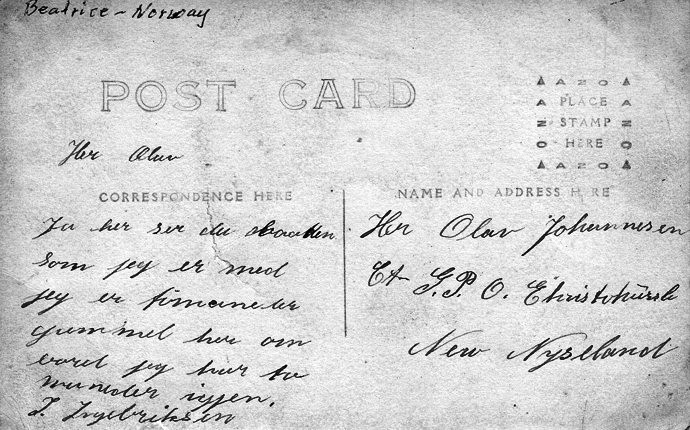 Beatrice - Norway
POST CARD
AZO
PLACE
STAMP
HERE
AZO
Her Olav
CORRESPONDENCE HERE
NAME AND ADDRESS HERE
Ja her ser du baaten
som jeg er med
jeg er fimaneder
gammel her om
bord jeg har to
maneder igjen.
T. Ingebriksen
Her Olav Johannesen
G.P.O. Christchürch
New Nyseland